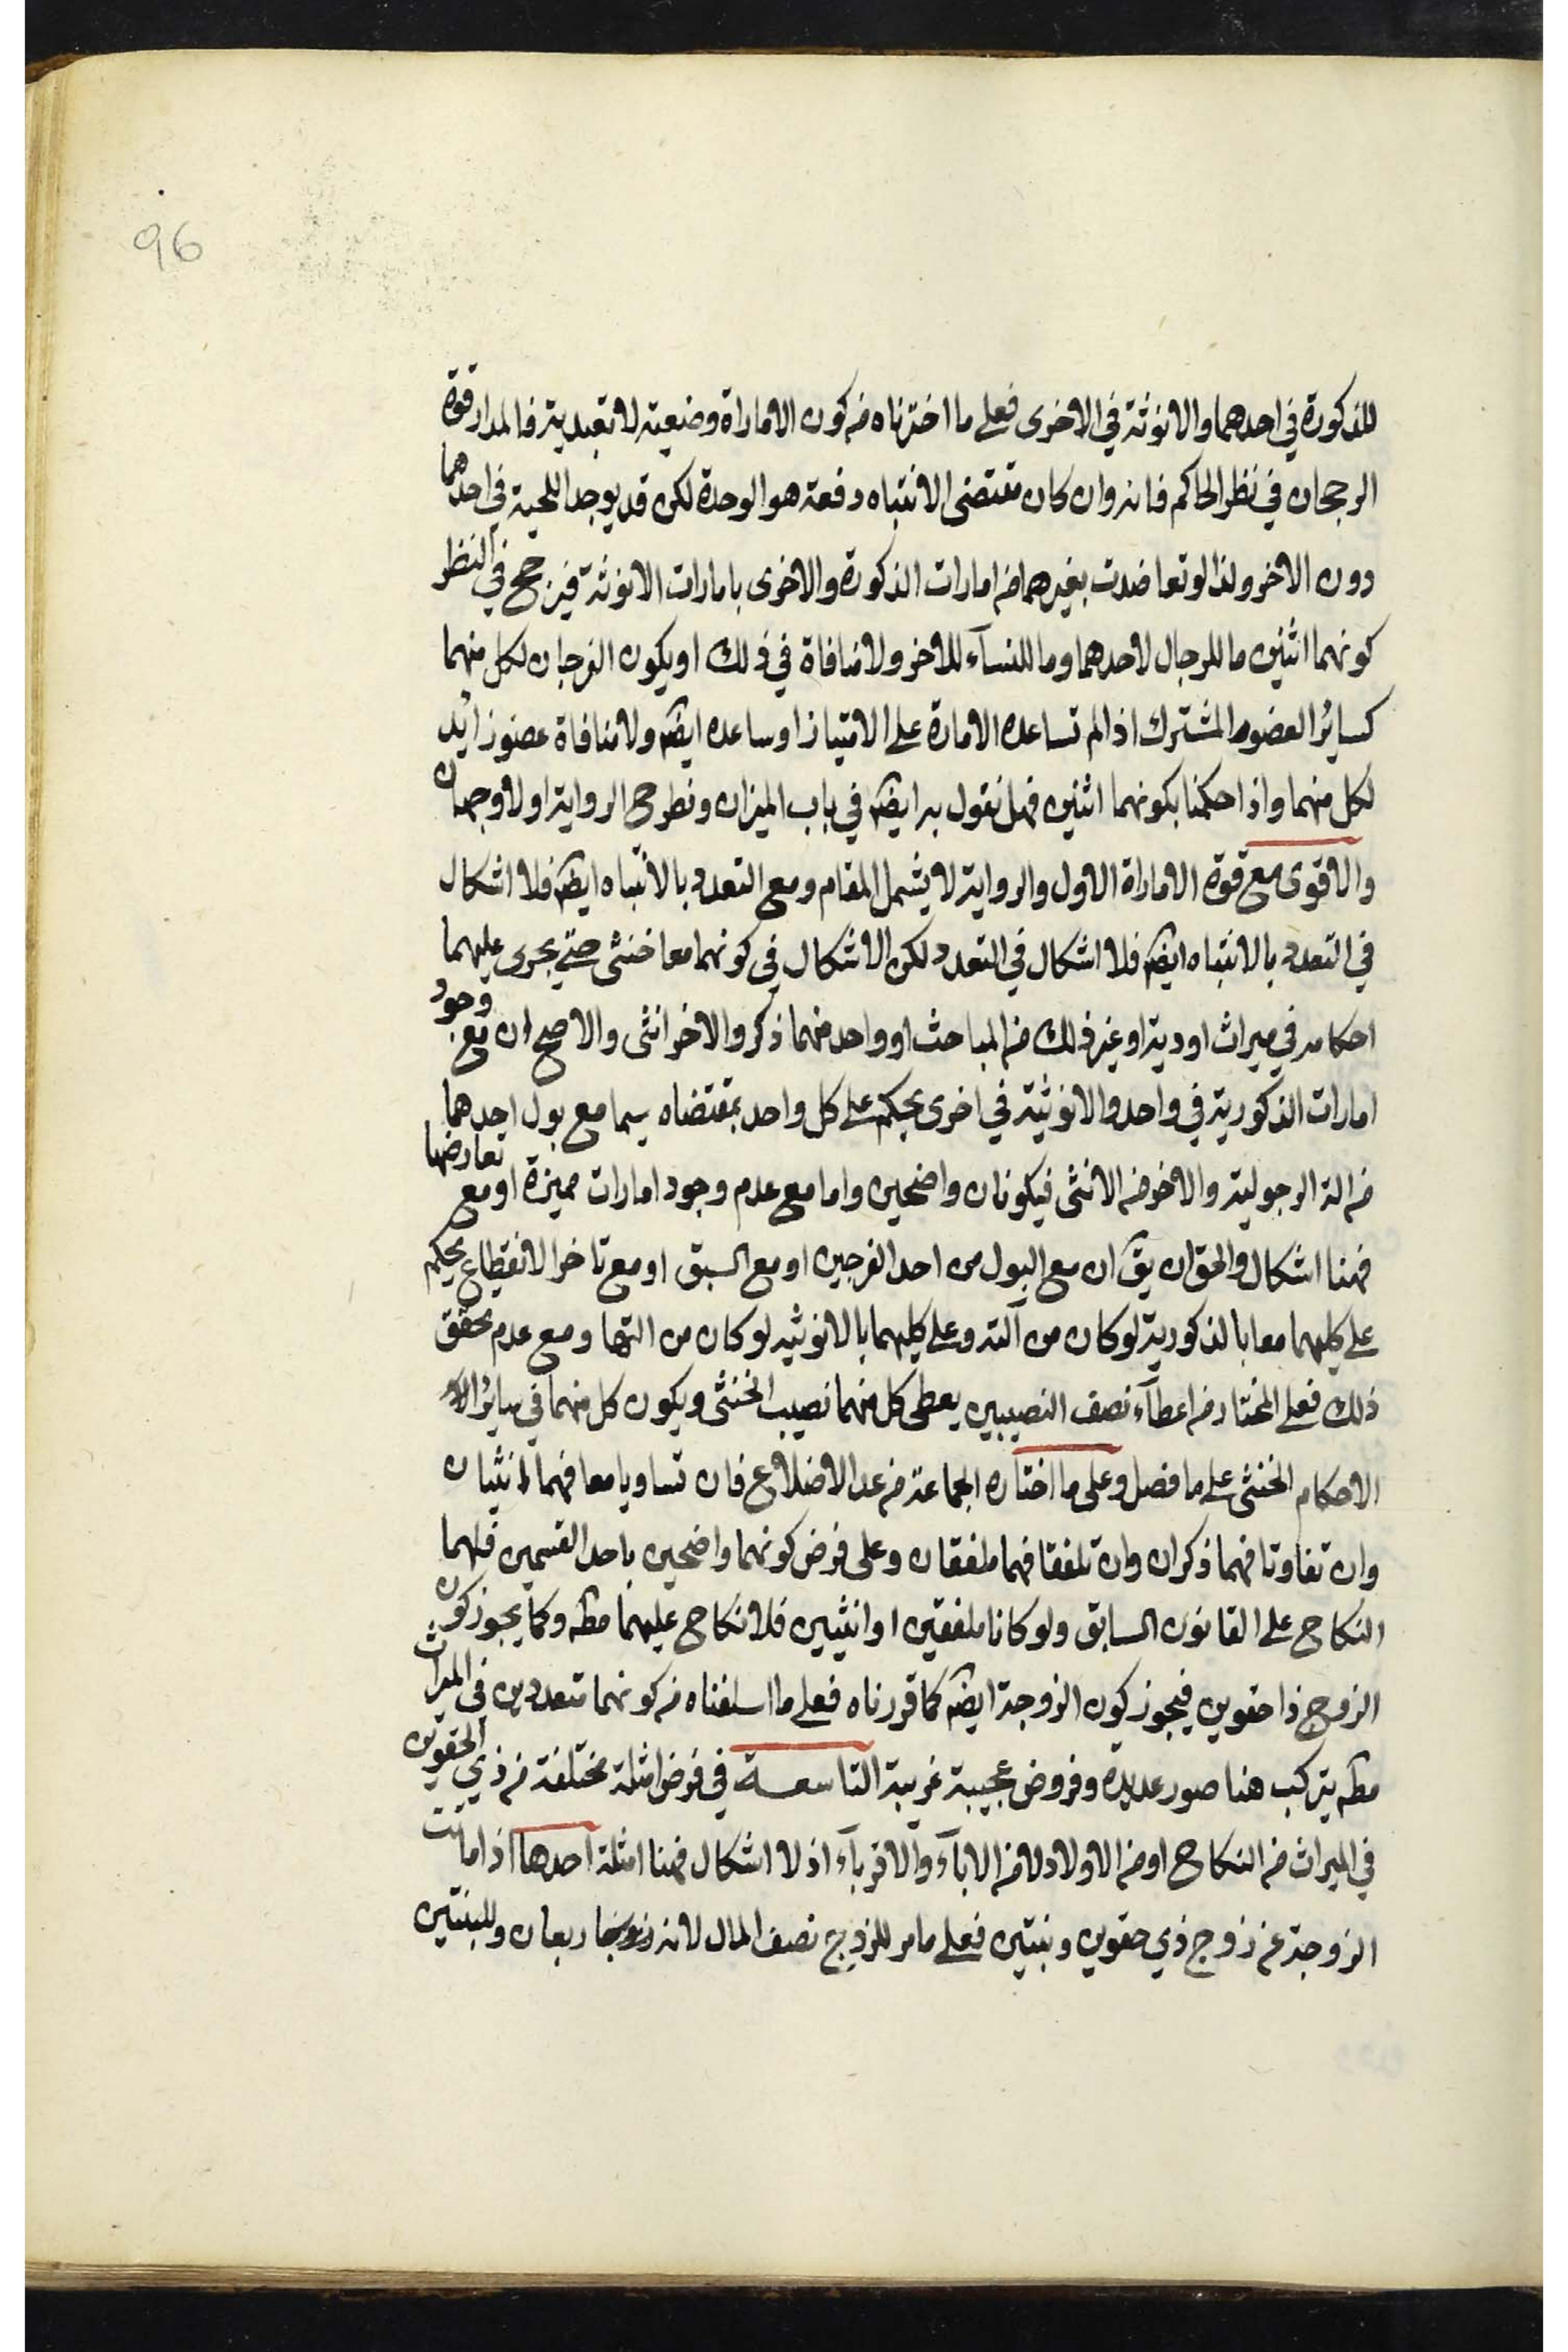 96
للذكورة في احدهما والانوثة في الاخرى فعلى ما اخترناه من كون الاماراة وضعية لا تعبدية فالمدار قوة
الرجحان في نظر الحاكم فانه وان كان مقتضى الانتباه دفعة هو الوحدة لكن قد يوجد اللحية في احدهما
دون الاخر ولذا لو تعاضدت بغيرهما من امارات الذكورة والاخرى بامارات الانوثة فيرجح في النظر
كونهما اثنين ما للرجال لاحدهما وما للنسآء للاخر ولا منافاة في ذلك او يكون الفرجان لكل منهما
كسائر العضو المشترك اذا لم تساعده الامارة على الامتياز او ساعده ايضً ولا منافاة عضو زائد
لكل منهما واذا حكمنا بكونهما اثنين فهل نقول به ايضً في باب الميراث ونطرح الرواية اولا وجهان
والاقوى مع قوة الاماراة الاول والرواية لا يشمل المقام ومع التعدد بالانتباه ايضً فلا اشكال
في التعدد بالانتباه ايضً فلا اشكال في التعدد لكن الاشكال في كونهما معا خنثى حتى يجرى عليهما
احكامه في ميراث او دية او غير ذلك من المباحث او واحد منهما ذكر والاخر انثى والاصح ان مع وجود
امارات الذكورية في واحد والانوثية في اخرى يحكم على كل واحد بمقتضاه سيما مع بول احدهما
من الة الرجولية والاخر من الانثى فيكونان واضحين واما مع عدم وجود امارات مميزة او مع تعارضها
فهنا اشكال والحق ان يقً ان مع البول من احد الفرجين او مع السبق او مع تاخر الانقطاع يحكم
على كليهما معا بالذكورية لو كان من آلته وعلى كليهما بالانوثيه لو كان من التها ومع عدم تحقق
ذلك فعلى المختار من اعطآء نصف النصيبين يعطى كل منهما نصيب الخنثى ويكون كل منهما في سائر الا
الاحكام الخنثى على ما فصل وعلى ما اختاره الجماعة من عد الاضلاع فان تساويا معا فهما انثيان
وان تفاوتا فهما ذكران وان تلفقا فهما ملفقان وعلى فرض كونهما واضحين باحد القسمين فلهما
النكاح على القانون السابق ولو كانا ملفقين او انثيين فلا نكاح عليهما مطً وكما يجوز كون
الزوج ذا حقوين فيجوز كون الزوجة ايضً كما قررناه فعلى ما اسلفناه من كونهما متعددين في الميراث
مطً يتركب هنا صور عديدة وفروض عجيبة غريبة التاسعة في فرض امثلة مختلفة من ذي الحقوين
في الميراث من النكاح او من الاولاد لا من الابآء والاقربآء اذ لا اشكال فهنا امثلة احدها اذا ماتت
الزوجة عن زوج ذي حقوين وبنتين فعلى ما مر للزوج نصف المال لانه ربعان وللبنتين